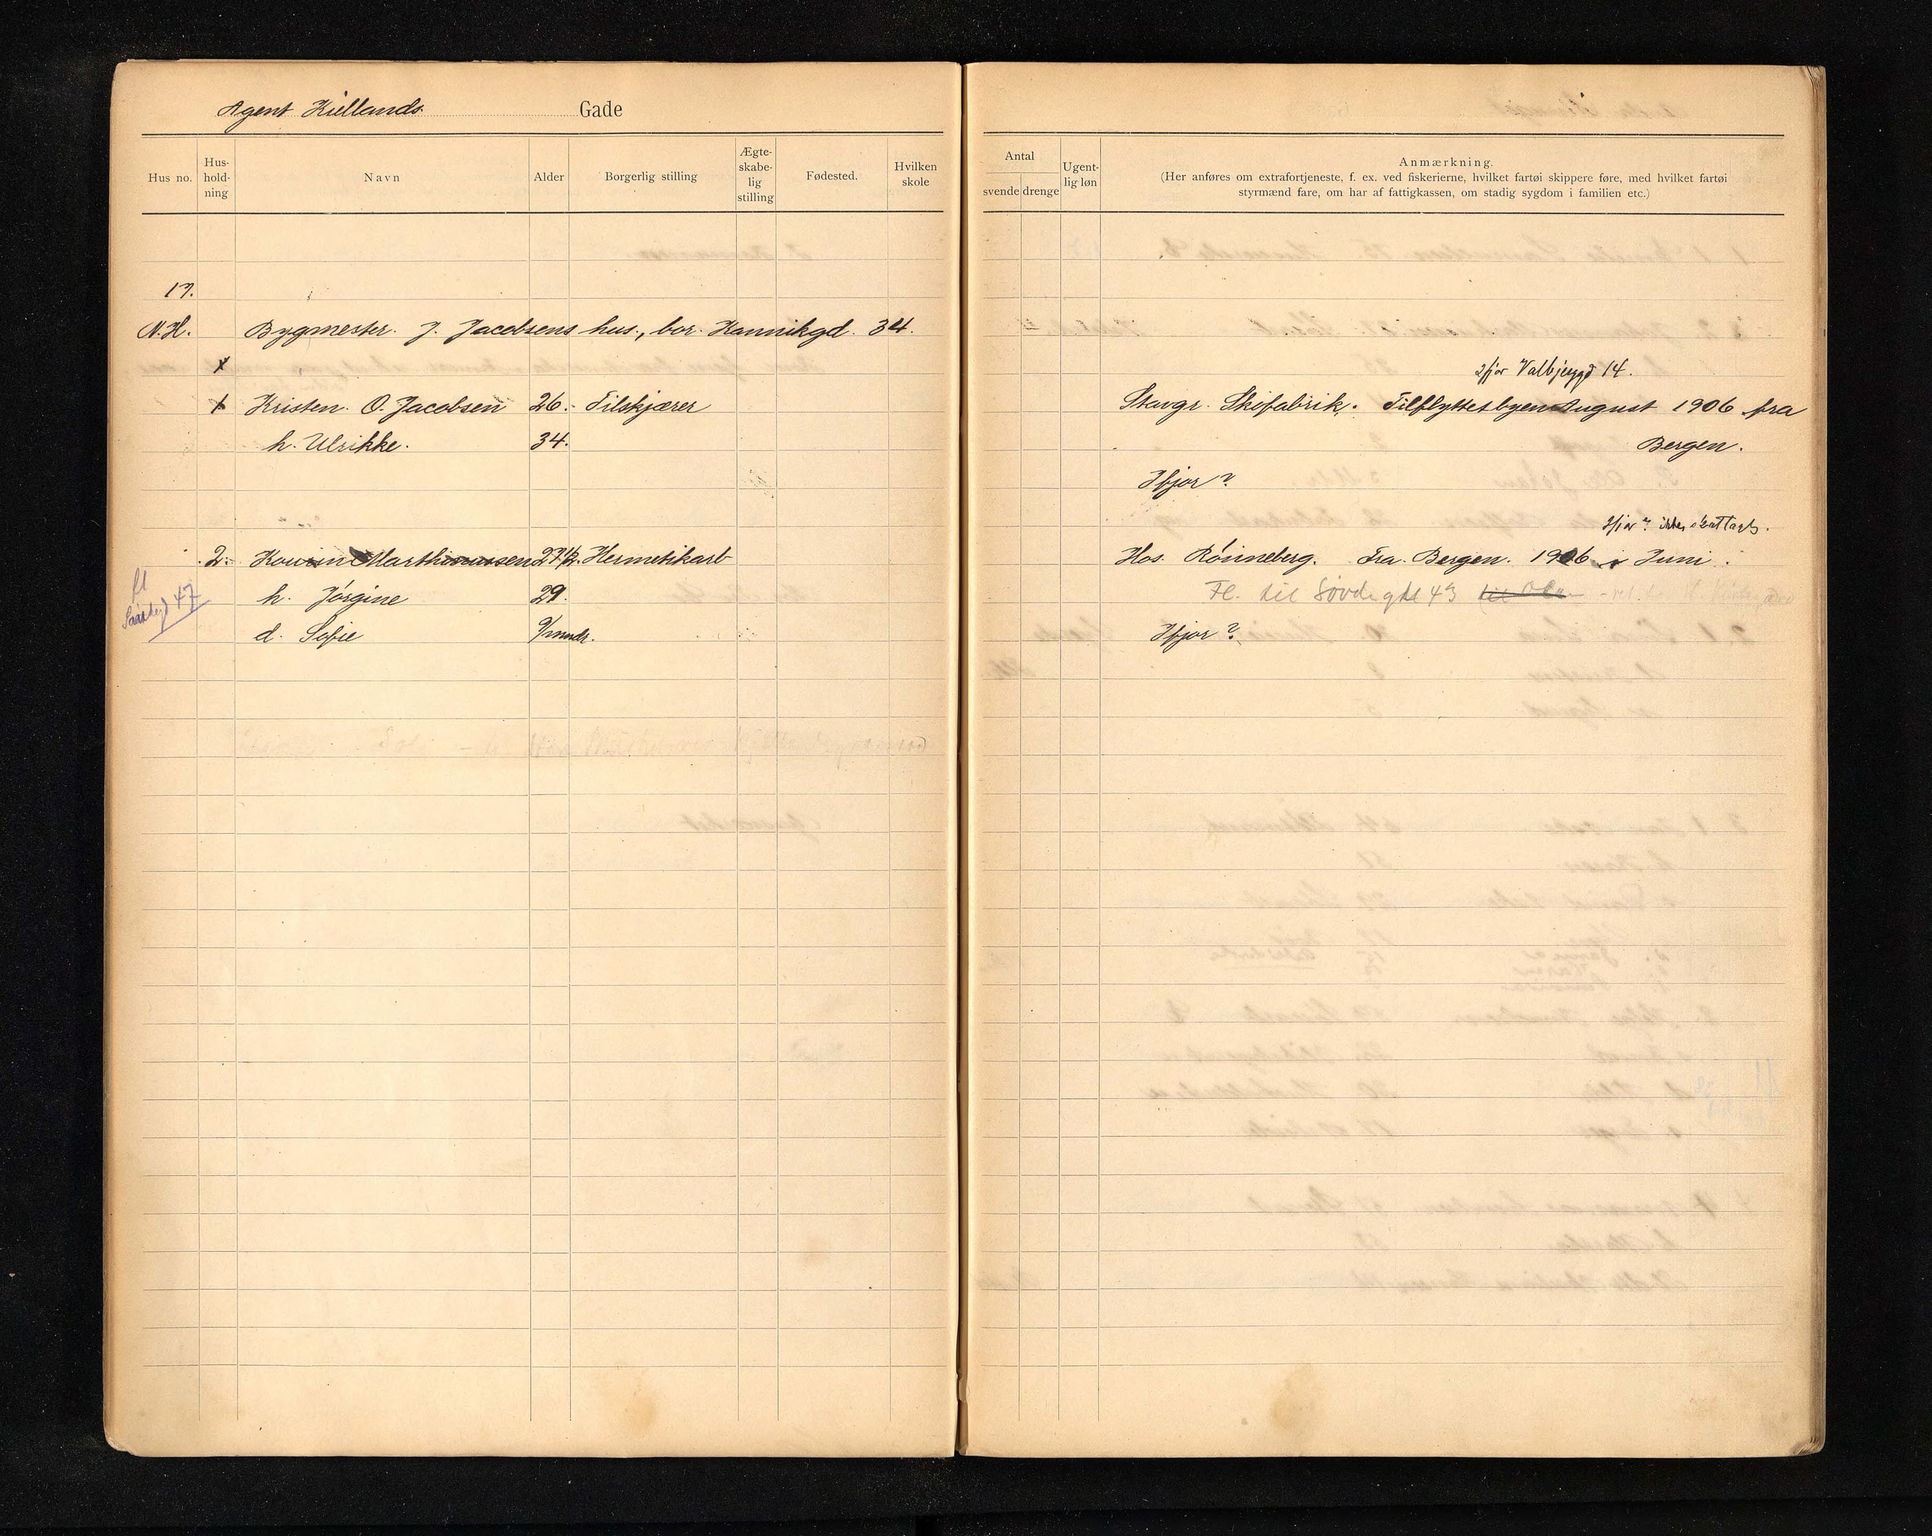 Agent Kiellands Gade
Hus no.
Hus-
hold-
ning
Navn
Alder
Borgerlig stilling
Ægte-
skabe-
lig
stilling
Fødested.
Hvilken
skole
17.
N.H. Bygmester. J. Jacobsens hus., bor. Kannikgd. 34.
1 Kristen. O. Jacobsen 26. Tilskjærer
h. Ulrikke. 34.
2. Marthinussen Hermetikarb
h. Jørgine 29.
d. Sofie 9/mndr.
fl
47
Antal
svende drenge
Ugent-
lig løn
Anmærkning.
(Her anføres om extrafortjeneste, f. ex. ved fiskerierne, hvilket fartøi skippere føre, med hvilket fartøi
styrmænd fare, om har af fattigkassen, om stadig sygdom i familien etc.)
Ifjor Valbjergd 14.
Stavgr. Skofabrik. Tilflyttet byen August 1906 fra
Bergen.
Ifjor?
Ifjor? ikke skattlagt.
Hos. Rønneberg. Fra. Bergen. 1906 i Juni.
Fl. til Søvdegde 43
Ifjor?